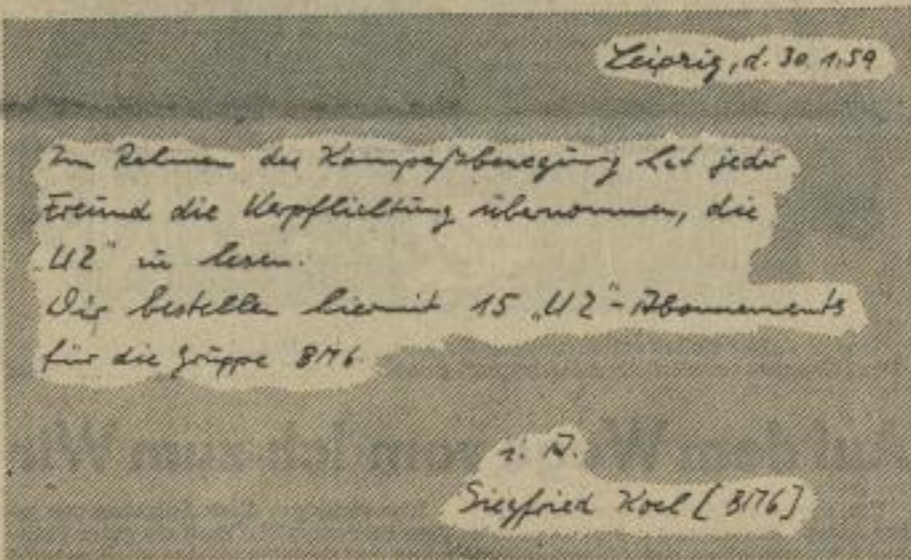 Leipzig, d. 30.1.59
Im Rahmen der Kompaßbewegung hat jeder
Freund die Verpflichtung übernommen, die
„UZ“ zu lesen.
Wir bestellen hiermit 15 „UZ“-Abonnements
für die Gruppe
i. A.
Siegfried